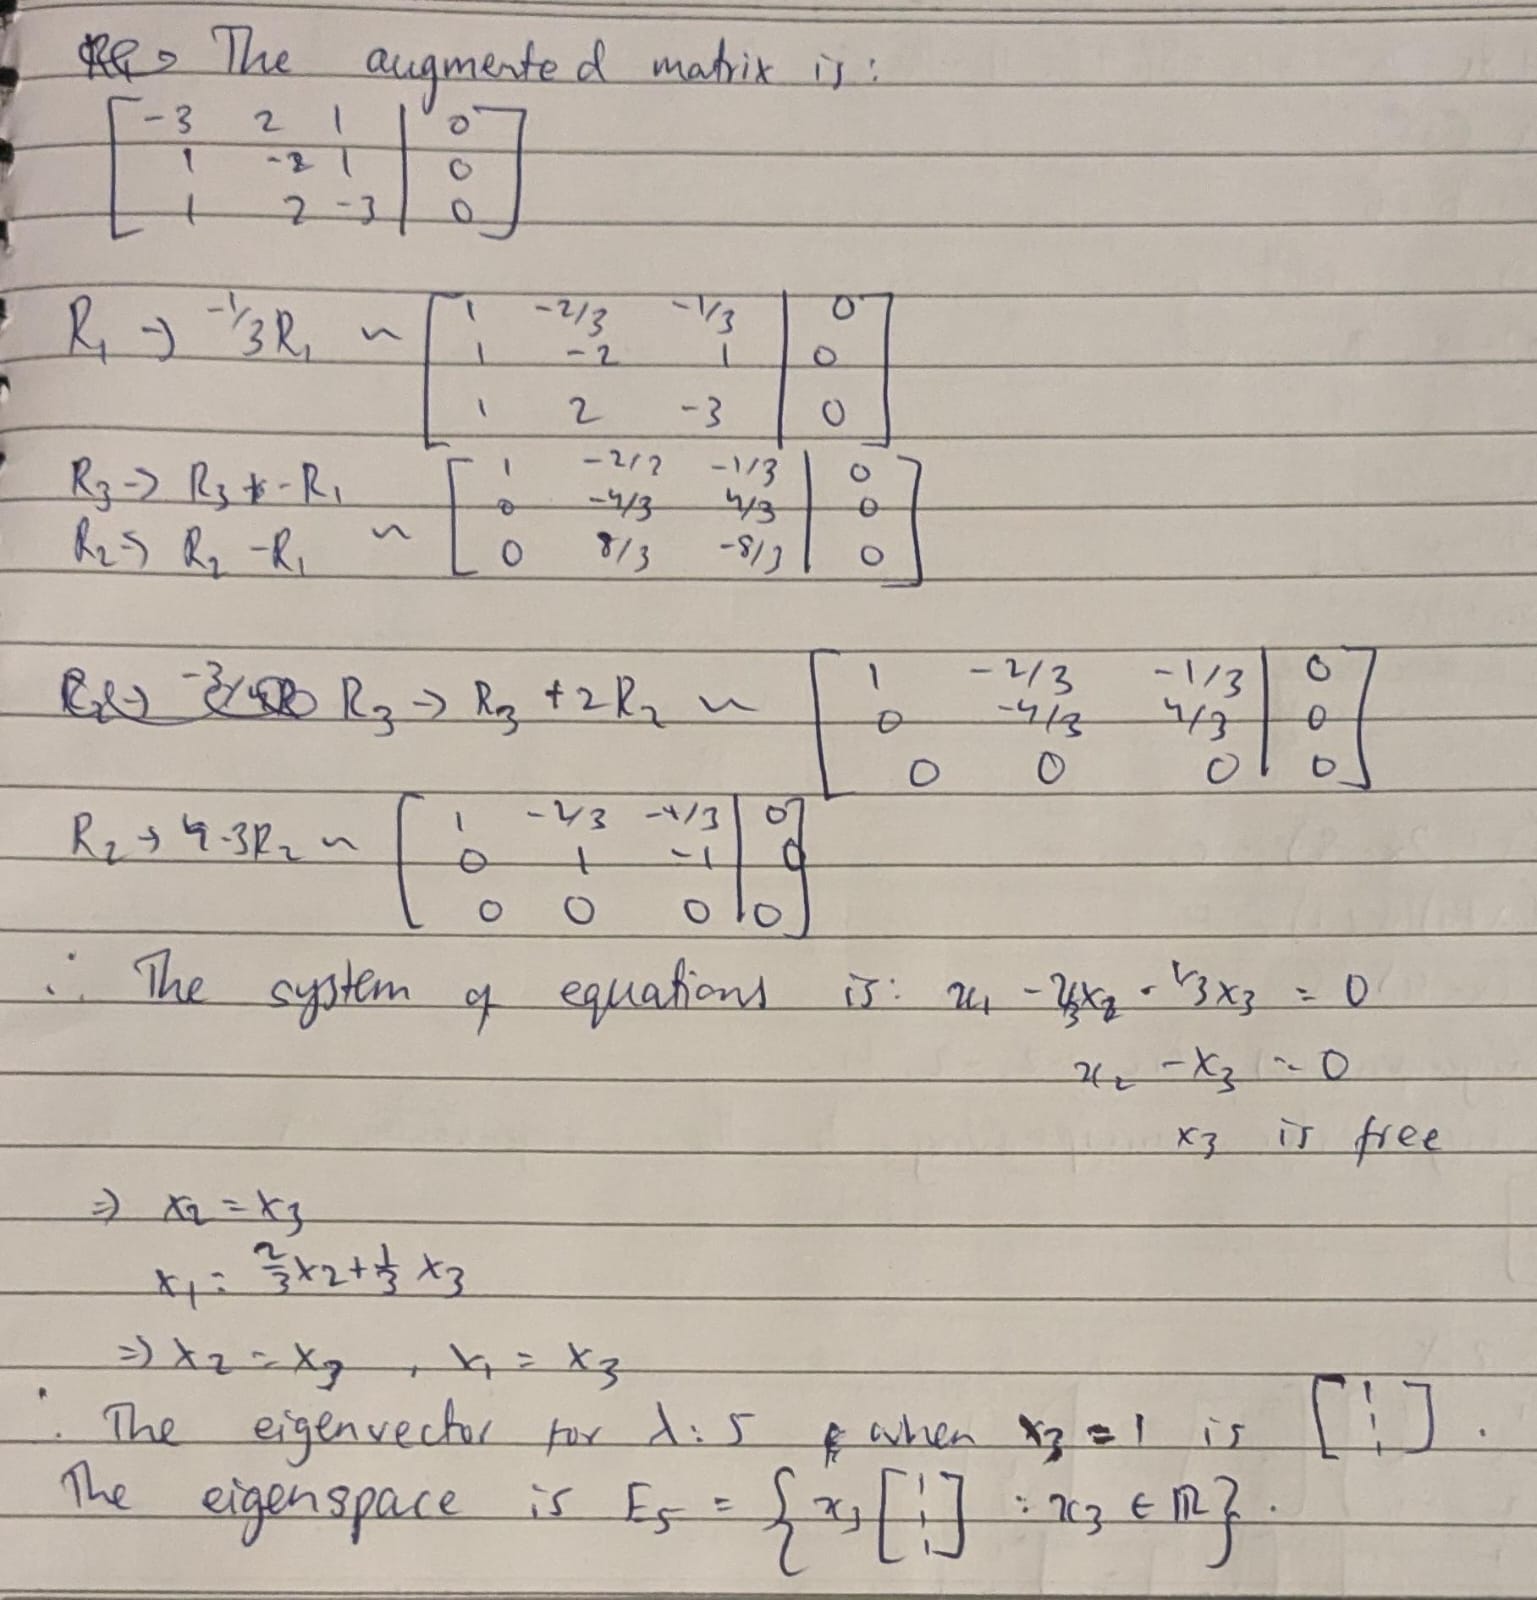 The augmented matrix is:
[ -3 2 1 | 0 ]
[ 1 -2 1 | 0 ]
[ 1 2 -3 | 0 ]
R₁ → -1/3R₁ ~ [ 1 -2/3 -1/3 | 0 ]
[ 1 -2 1 | 0 ]
[ 1 2 -3 | 0 ]
R₃ → R₃ - R₁ [ 1 -2/3 -1/3 | 0 ]
[ 0 -4/3 4/3 | 0 ]
R₂ → R₂ - R₁ ~ [ 0 8/3 -8/3 | 0 ]
R₃ → R₃ + 2R₂ ~ [ 1 -2/3 -1/3 | 0 ]
[ 0 -4/3 4/3 | 0 ]
[ 0 0 0 | 0 ]
R₂ → -3R₂ ~ [ 1 -2/3 -1/3 | 0 ]
[ 0 1 -1 | 0 ]
[ 0 0 0 | 0 ]
∴ The system of equations is: x₁ - 2/3x₂ - 1/3x₃ = 0
x₂ - x₃ = 0
x₃ is free
⇒ x₂ = x₃
x₁ = 2/3 x₂ + 1/3 x₃
⇒ x₂ = x₃ , x₁ = x₃
∴ The eigenvector for λ = 5 when x₃ = 1 is [1 1 1].
The eigenspace is E₅ = { x₃ [1 1 1] : x₃ ∈ ℝ }.